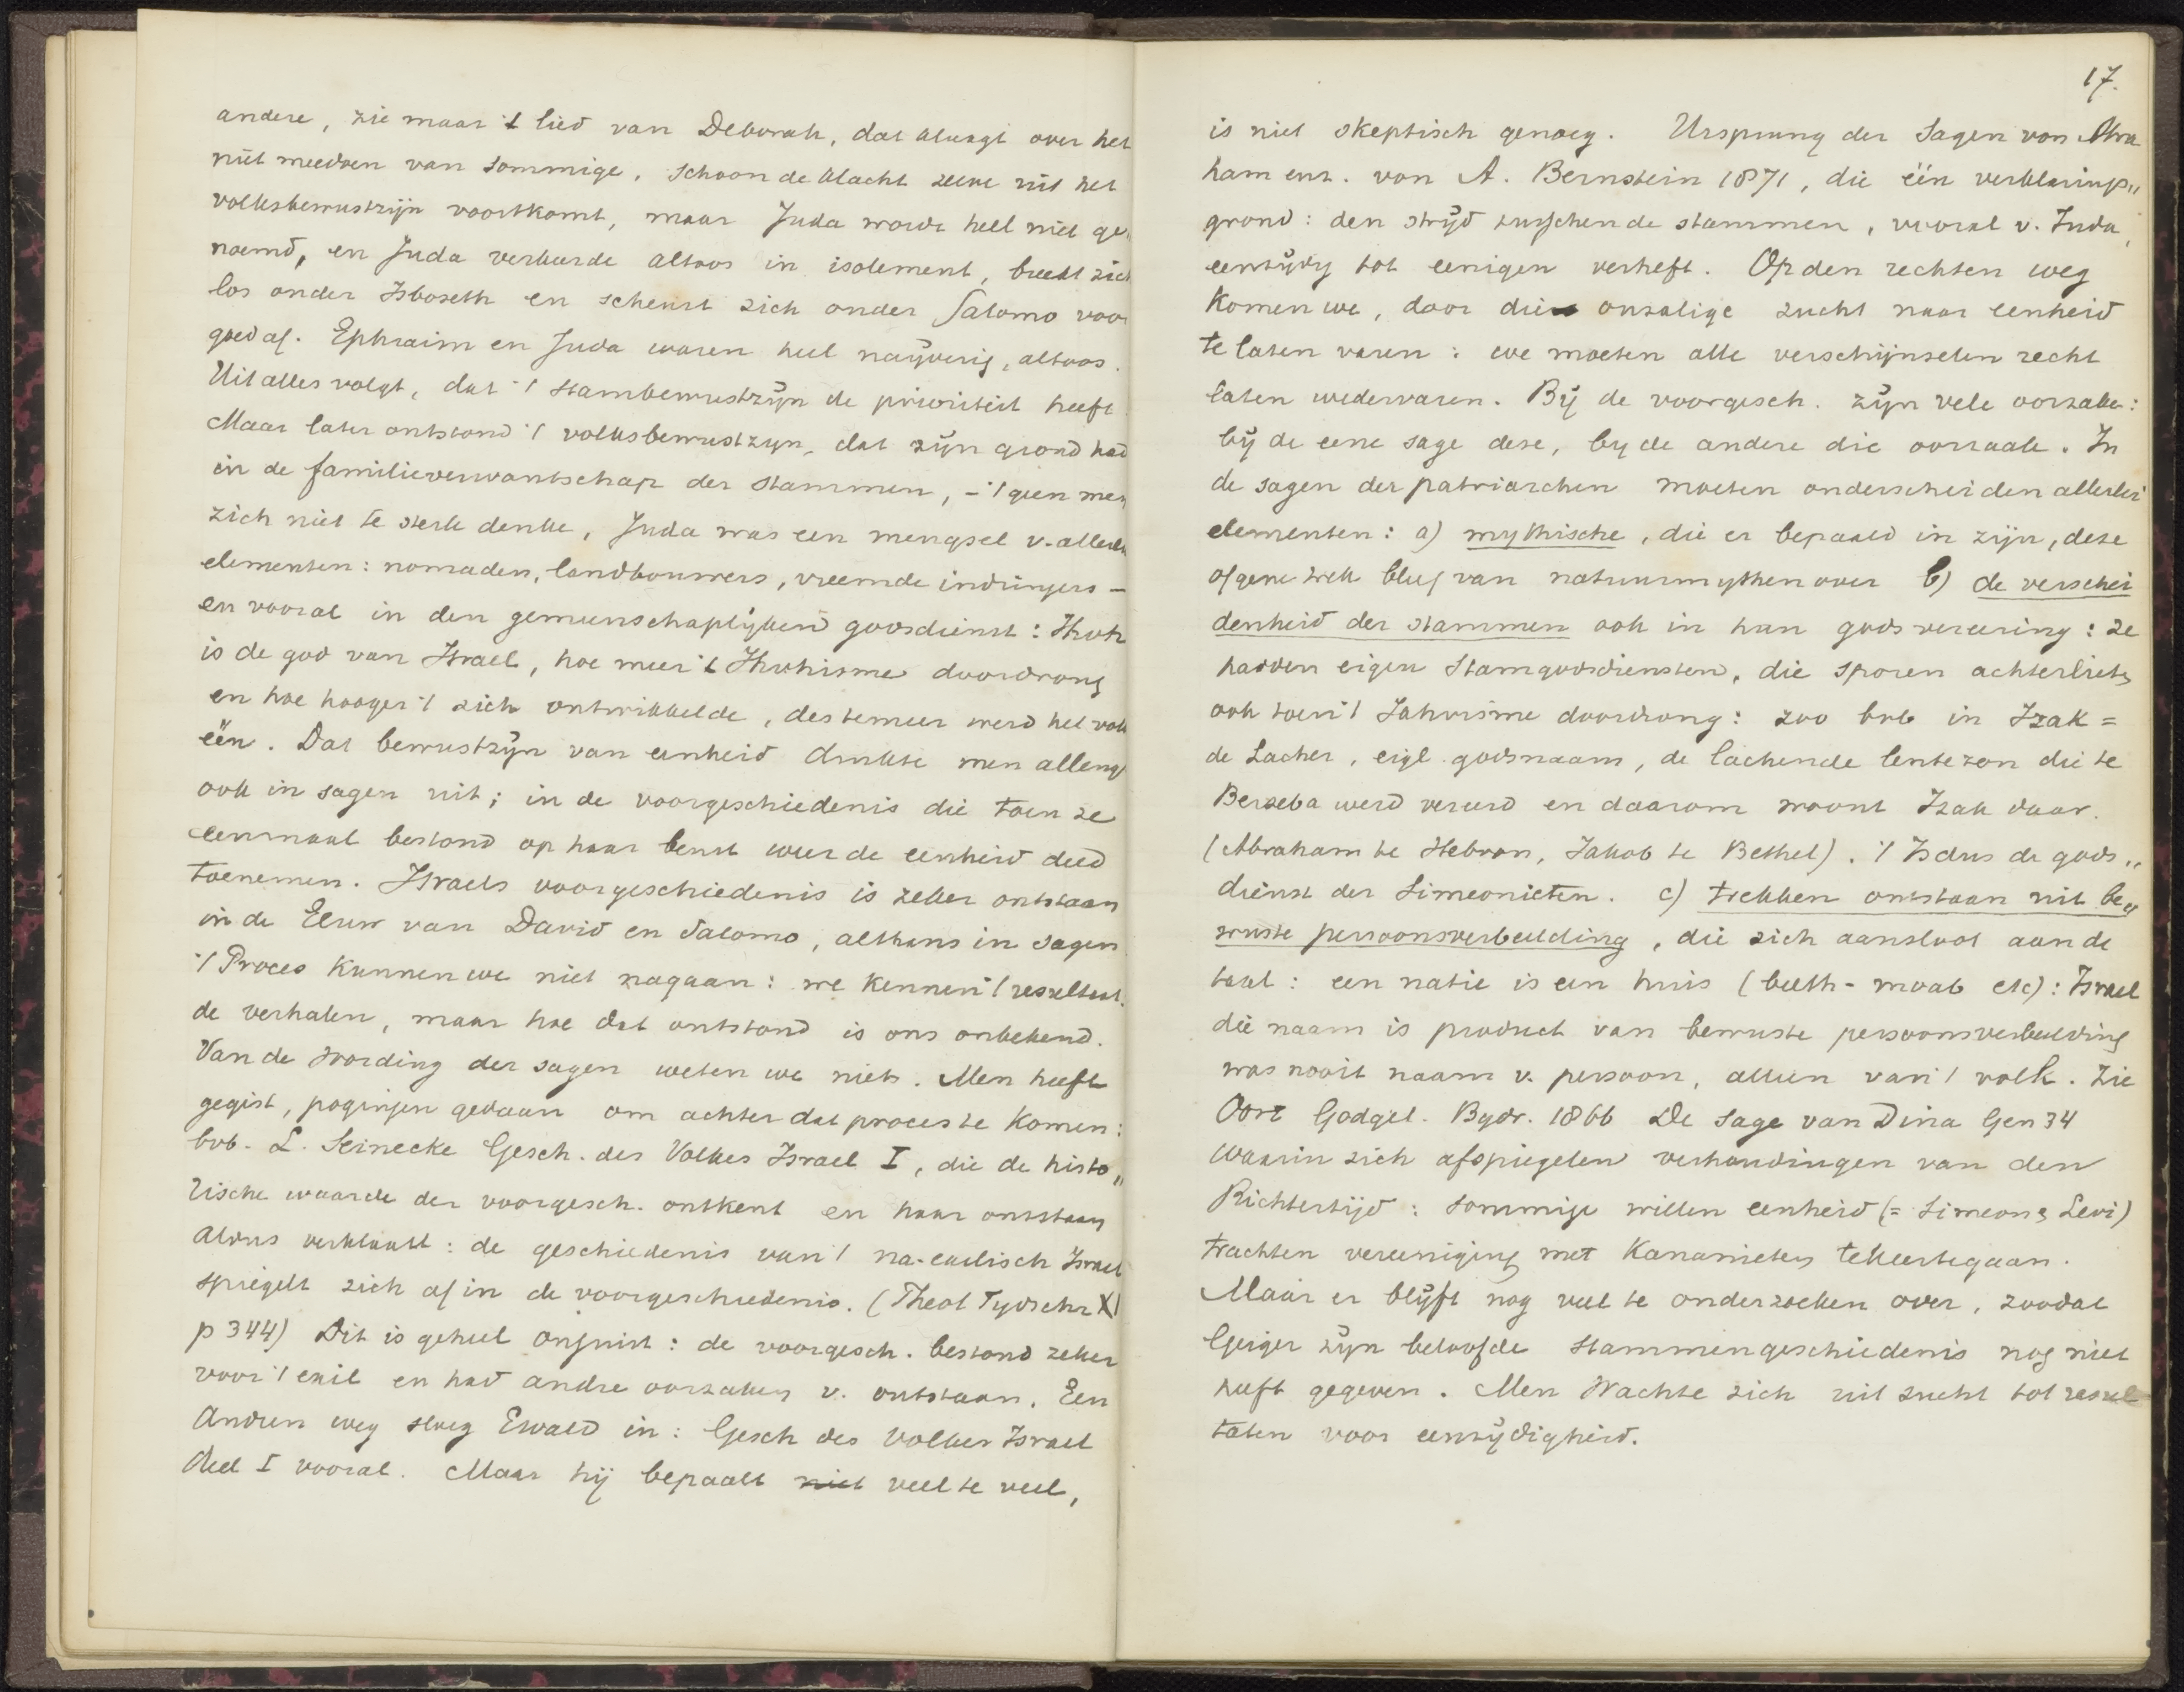 andere, zie maar 't lied van Deborah, dat klaagt over het
niet meedoen van sommige, schoon de klacht zelve uit het
volksbewustzijn voortkomt, maar Juda wordt heel niet ge„
noemd, en Juda verkeerde altoos in isolement, breekt zich
los onder Isboseth en scheurt zich onder Salomo voor
goed af. Ephraim en Juda waren heel naijverig, altoos.
Uit alles volgt, dat 't stambewustzijn de prioriteit heeft
Maar later ontstond 't volksbewustzyn, dat zijn grond had
in de familieverwantschap der stammen, – 't geen men
zich niet te sterk denke, Juda was een mengsel v. allerlei
elementen: nomaden, landbouwers, vreemde indringers –
en vooral in den gemeenschaplijken godsdienst: Jhvh
is de god van Israel, hoe meer 't Jhvhisme doordrong
en hoe hooger 't zich ontwikkelde, des temeer werd het volk
één. Dat bewustzijn van eenheid drukte men allengs
ook in sagen uit; in de voorgeschiedenis die toen ze
eenmaal bestond op haar beurt weer de eenheid deed
toenemen. Israels voorgeschiedenis is zeker ontstaan
in de Eeuw van David en Salomo, althans in sagen
't Proces kunnen we niet nagaan: we kennen 't resultaat.
de verhalen, maar hoe dat ontstond is ons onbekend.
Van de wording der sagen weten we niets. Men heeft
gegist, pogingen gedaan om achter dat proces te komen:
bvb. L. Seinecke Gesch. des Volkes Israel I, die de histo„
rische waarde der voorgesch. ontkent en haar ontstaan
aldus verklaart: de geschiedenis van 't na-exilisch Israel
spiegelt zich af in de voorgeschiedenis. (Theol Tydschr XI
p 344) Dit is geheel onjuist: de voorgesch. bestond zeker
voor 't exil en had andre oorzaken v. ontstaan. Een
andren weg sloeg Ewald in: Gesch des Volkes Israel
deel I vooral. Maar hij bepaalt niet veel te veel,
17.
is niet skeptisch genoeg. Ursprung der Sagen von Abra
ham enz. von A. Bernstein 1871, die één verklarings„
grond: den strijd tusschen de stammen, vooral v. Juda,
eenzijdig tot eenigen verheft. Op den rechten weg
komen we, door die onzalige zucht naar eenheid
te laten varen: we moeten alle verschijnselen recht
laten wedervaren. Bij de voorgesch. zijn vele oorzaken:
bij de eene sage deze, by de andere die oorzaak. In
de sagen der patriarchen moeten onderscheiden allerlei
elementen: a) mythische, die er bepaald in zijn, deze
of gene trek bleef van natuurmythen over b) de verschei
denheid der stammen ook in hun godsvereering: ze
hadden eigen stamgodsdiensten, die sporen achterlieten
ook toen 't Jahvisme doordrong: zoo bvb in Izak =
de Lacher, eigl. godsnaam, de lachende lentezon die te
Berseba werd vereerd en daarom woont Izak daar.
(Abraham te Hebron, Jakob te Bethel). 't Is dus de gods„
dienst der Simeonieten. c) trekken ontstaan uit be„
wuste persoonsverbeelding, die zich aansloot aan de
taal: een natie is een huis (beeth-moab etc): Israel
die naam is product van bewuste persoonsverbeelding
was nooit naam v. persoon, alleen van 't volk. Zie
Oort Godgel. Bydr. 1866 De sage van Dina Gen 34
waarin zich afspiegelen verhoudingen van den
Richtertijd: sommige willen eenheid (= Simeon & Levi)
trachten vereeniging met Kananieten tekeertegaan.
Maar er blijft nog veel te onderzoeken over, zoodat
Geiger zijn beloofde stammengeschiedenis nog niet
heeft gegeven. Men wachte zich uit zucht tot resul
taten voor eenzijdigheid.